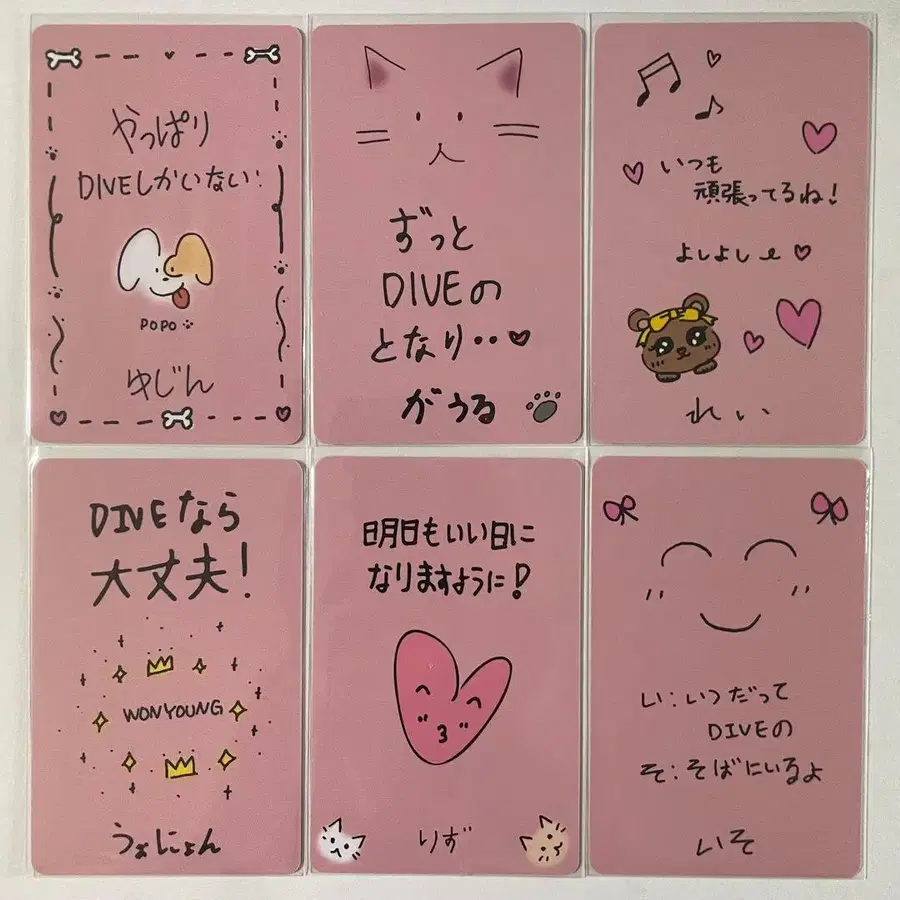 やっぱり
DIVEしかいない!
POPO
ゆじん
ずっと
DIVEの
となり・・♥
がうる
いつも
頑張ってるね!
よしよし
れい
DIVEなら
大丈夫!
WONYOUNG
うぉにょん
明日もいい日に
なりますように!
りず
い:いつだって
DIVEの
そ:そばにいるよ
いそ